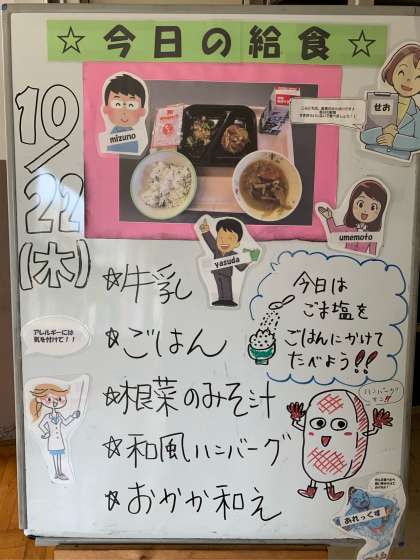 ☆今日の給食☆
10/22(木)
mizuno
せお
yasuda
umemoto
☆牛乳
☆ごはん
☆根菜のみそ汁
☆和風ハンバーグ
☆おかか和え
今日は
ごま塩を
ごはんにかけて
たべよう!!
アレルギーには
気を付けて!!
ハンバーグ
あれっくす